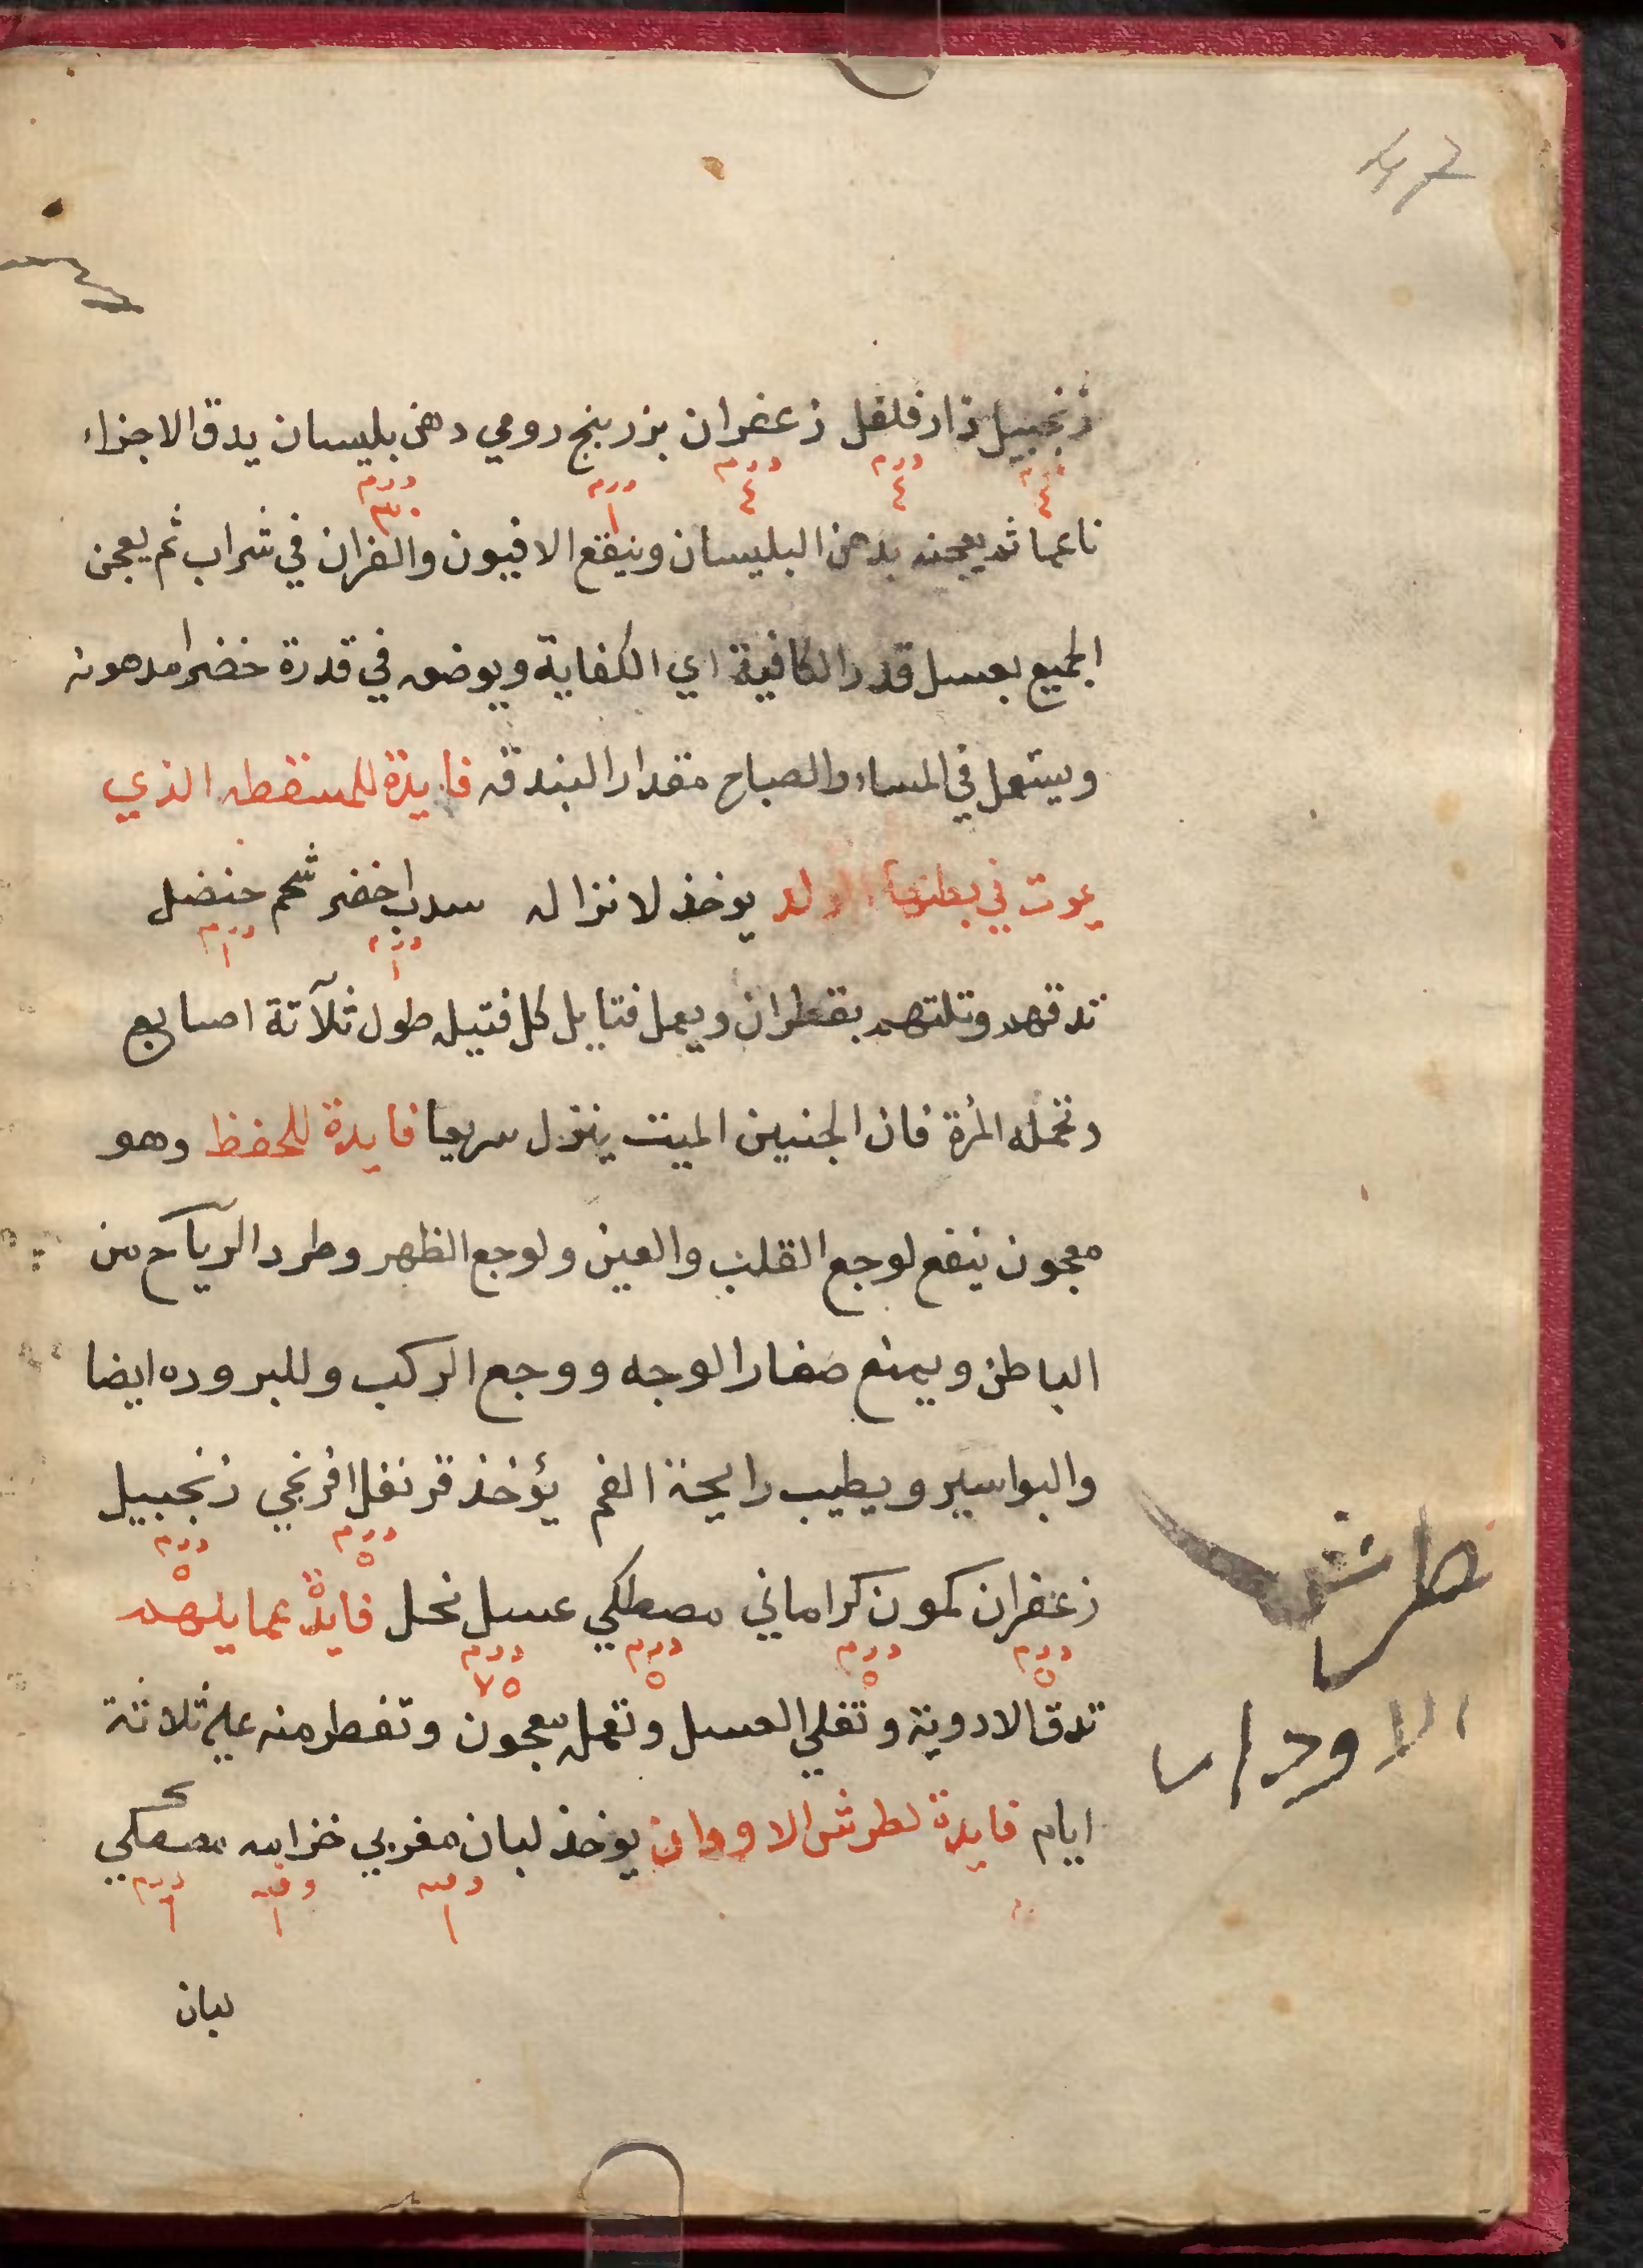 زنجبيل دارفلفل زعفران بزر بنج رومي دهن بليسان يدق الاجزاء
درم ٤ درم ٤ درم ٤ درم ١ درم ٣٠
ناعما ثم يعجنه بدهن البليسان وينقع الافيون والفران في شراب ثم يعجن
الجميع بعسل قدر الكافية اي الكفاية ويوضع في قدرة خضرا مدهونه
ويستعمل في المساء والصباح مقدار البندقه فايدة للمسقطه الذي
يموت في بطنها الولد يوخذ لانزاله سداب اخضر شحم حنضل
درم ١ درم ١
تدقهم وتلتهم بقطران ويعمل فتايل كل فتيله طول ثلآثة اصابع
وتحمله المرة فان الجنين الميت ينزل سريعا فايدة للحفظ وهو
معجون ينفع لوجع القلب والعين ولوجع الظهر وطرد الرياح من
الباطن ويمنع صفار الوجه ووجع الركب وللبروده ايضا
والبواسير ويطيب رايحة الفم يؤخذ قرنفل افرنجي زنجبيل
درم ٥ درم ٥
زعفران كمون كراماني مصطكي عسل نحل فايدة عما يلهم
درم ٥ درم ٥ درم ٥ درم ٧٥
تدق الادوية وتغلي العسل وتعمله معجون وتفطر منه علي ثلاثة
ايام فايدة لطرش الاودان يوخذ لبان مغربي خزامه مصطكي
وقيه ١ وقيه ١ درم ٦
لبان
طرش
الاودان